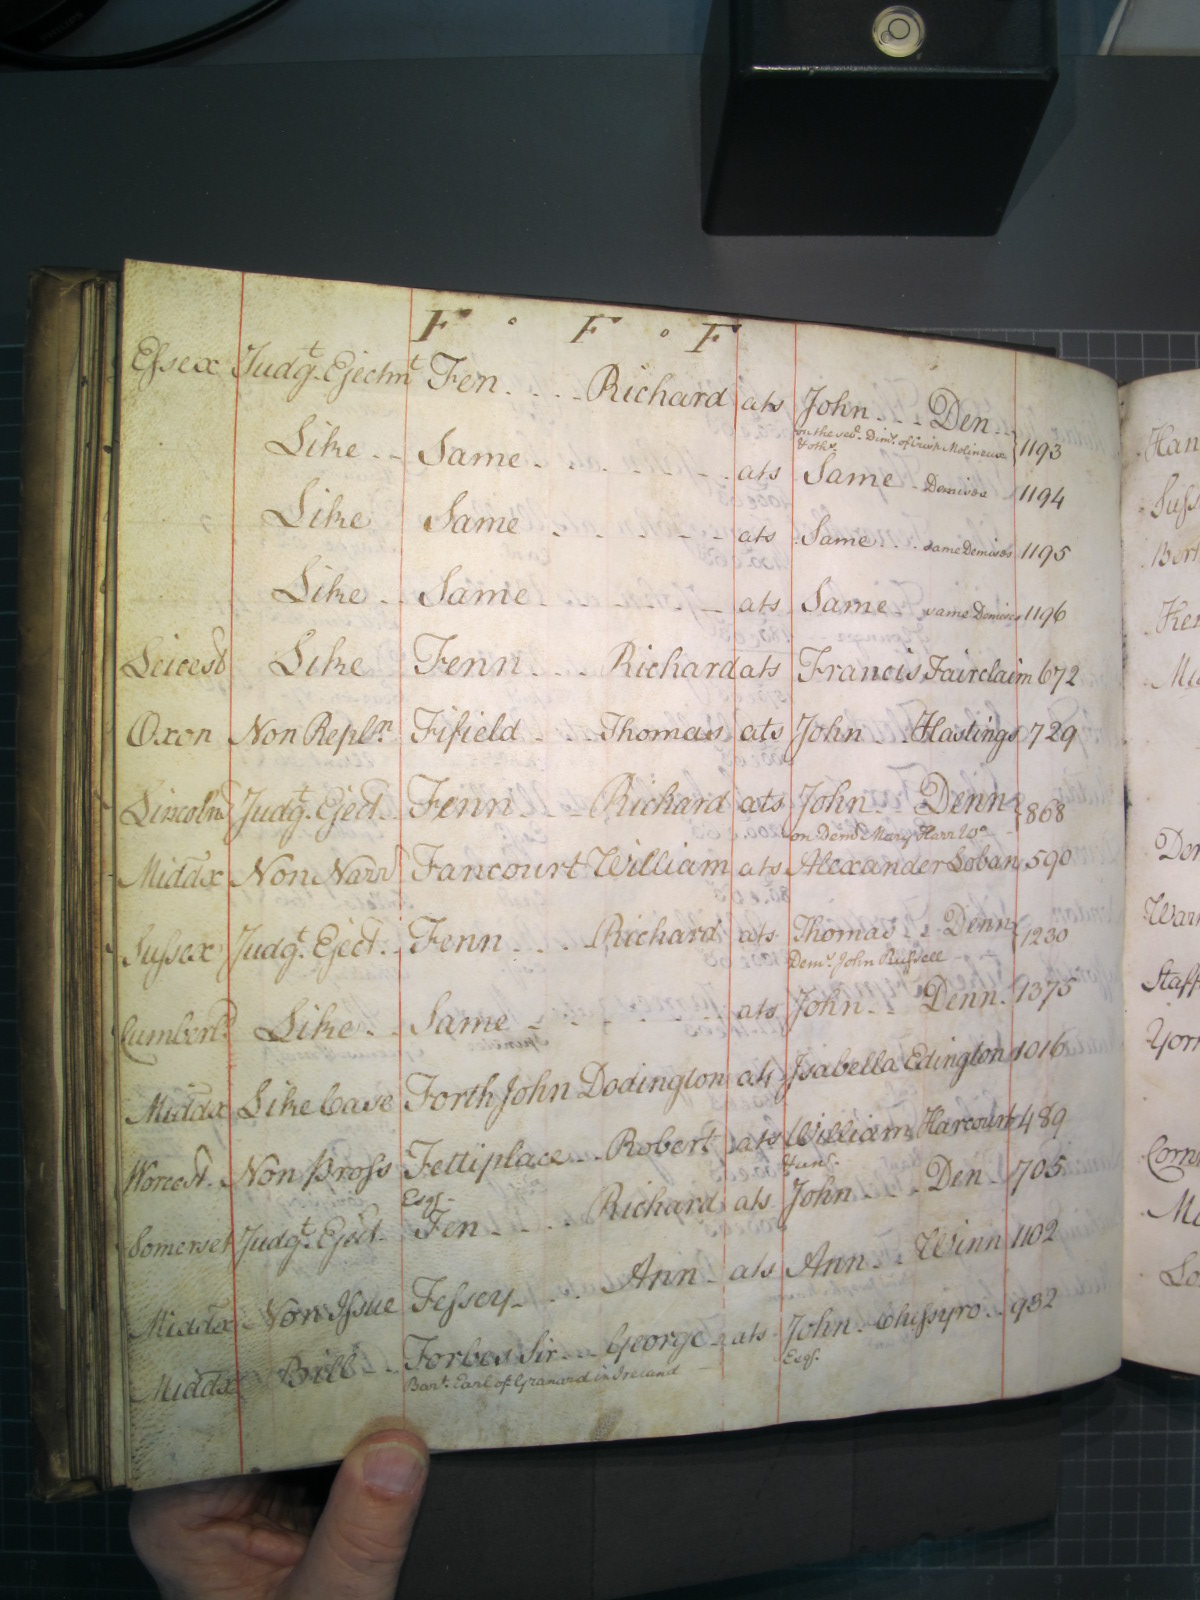 F o F o F
Essex Judgt. Ejectmt Fen . . . Richard ats John . . . Den
on the sev. Dims. of Crisp Molineux & oths. 1193
Like . . Same . . . . . . ats Same . Demises 1194
Like Same . . . . . . ats Same . . same Demises 1195
Like . . Same . . . . . . ats Same . same Demises 1196
Leicest Like Fenn . . . Richard ats Francis Fairclaim 672
Oxon Non Repln. Fifield . . . Thomas ats John . . Hastings 729
Lincoln Judgt. Eject. Fenn . . . Richard ats John . . Denn 868
on Dem Mary Wo.
Middx Non Narr Fancourt William ats Alexander Loban 590
Sussex Judgt. Eject. Fenn . . . Richard ats Thomas . . Denn 1230
Dem. John Russell
Cumberld. Like . . Same . . . . . . ats John . . Denn 1375
Middx Like Case Forth John Dodington ats Isabella Edington 1016
Worcest. Non Pross Fettiplace . . Robert ats William Harcourt 489
Esqr. & ux.
Somerset Judgt. Eject. Fen . . . Richard ats John . . . Den 705
Middx Non Issue Fessey . . . Ann . ats Ann . . Winn 1102
Middx Bill . . Forbes Sir . . George . ats John . 932
Bart. Earl of Granard in Ireland Esqr.
Han
Suss
Ken
Staff
York
Corn